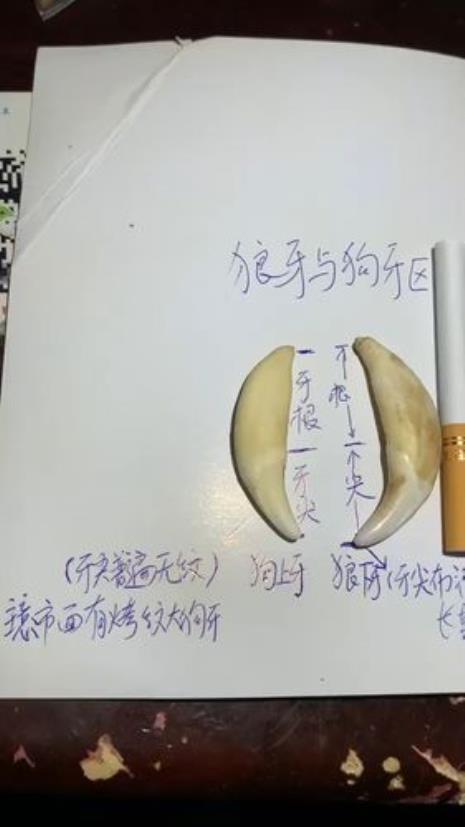 狼牙与狗牙区
牙根
牙尖
牙根
牙尖
(牙尖普遍无纹) 狗上牙 狼牙(牙尖布
市面有烤纹大狗牙